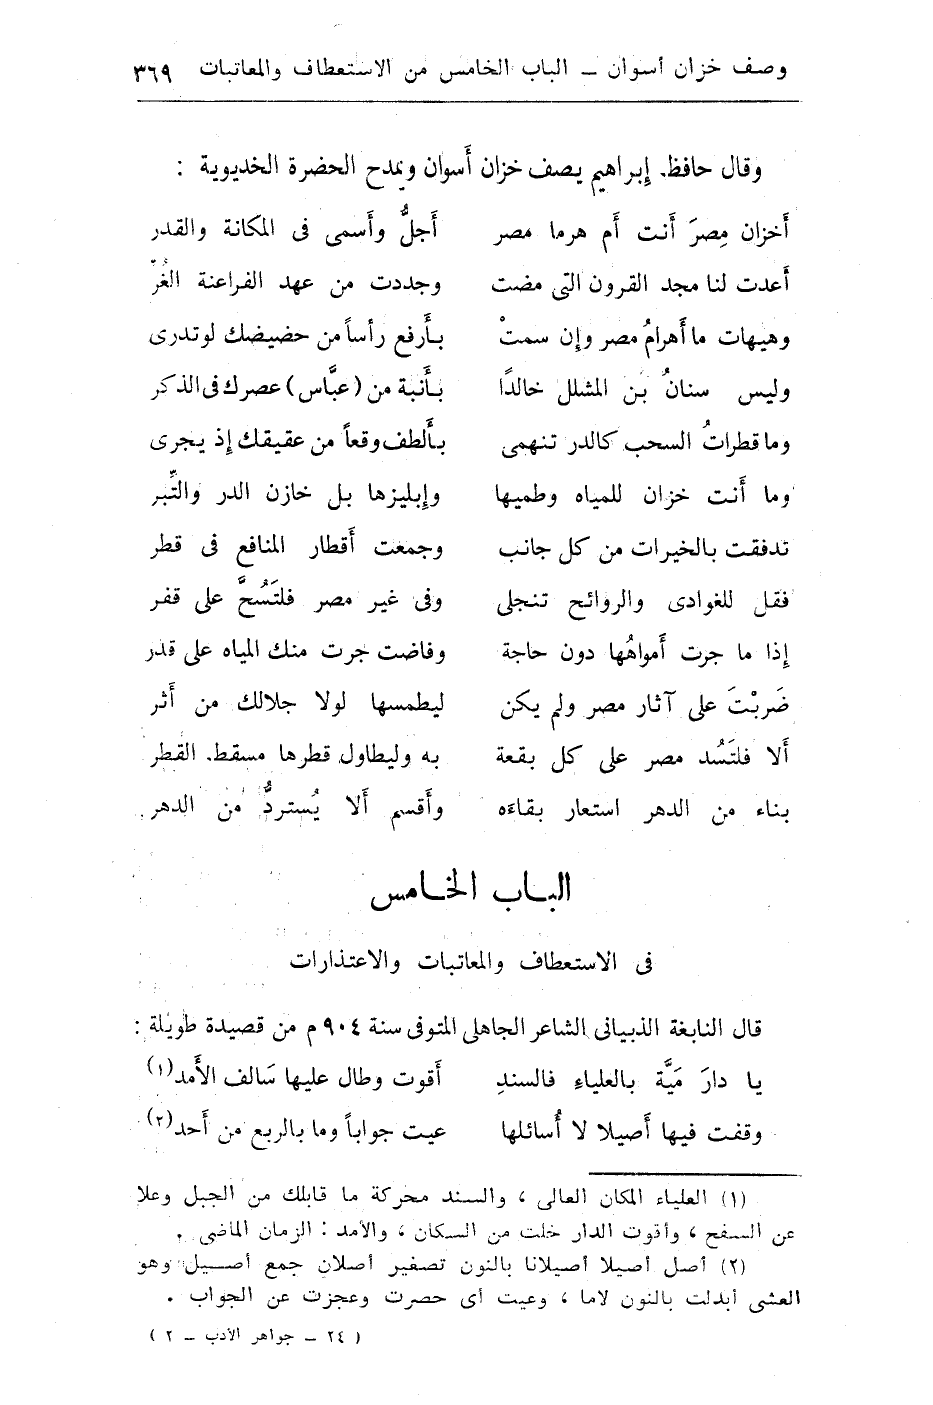 وصف خزان أسوان ـ الباب الخامس من الاستعطاف والمعاتبات ٣٦٩
وقال حافظ إبراهيم يصف خزان أسوان ويمدح الحضرة الخديوية :
أخزان مِصرَ أنت أم هرما مصر أجلُّ وأسمى فى المكانة والقدر
أعدت لنا مجد القرون التى مضت وجددت من عهد الفراعنة الغُرِّ
وهيهات ما أهرامُ مصر وإن سمتْ بأرفع رأساً من حضيضك لو تدرى
وليس سنانُ بن المشلل خالدًا بأنبة من (عبَّاس) عصرك فى الذكر
وما قطراتُ السحب كالدر تنهمى بألطف وقعاً من عقيقك إذ يجرى
وما أنت خزان للمياه وطميها وإبليزها بل خازن الدر والتِّبر
تدفقت بالخيرات من كل جانب وجمعت أقطار المنافع فى قطر
فقل للغوادى والروائح تنجلى وفى غير مصر فلتَسُحَّ على قفر
إذا ما جرت أمواهُها دون حاجة وفاضت جرت منك المياه على قدر
ضَربْتَ على آثار مصر ولم يكن ليطمسها لولا جلالك من أثر
ألا فلتَسُد مصر على كل بقعة به وليطاول قطرها مسقط القطر
بناء من الدهر استعار بقاءه وأقسم ألا يُستردُّ من الدهر
الباب الخامس
فى الاستعطاف والمعاتبات والاعتذارات
قال النابغة الذبيانى الشاعر الجاهلى المتوفى سنة ٩٠٤ م من قصيدة طويلة :
يا دارَ مَيَّة بالعلياءِ فالسندِ أقوت وطال عليها سَالف الأَمد(١)
وقفت فيها أصيلا لا أُسائلها عيت جواباً وما بالربع من أحد(٢)
(١) العلياء المكان العالى ، والسند محركة ما قابلك من الجبل وعلا
عن السفح ، وأقوت الدار خلت من السكان ، والأمد : الزمان الماضى .
(٢) أصل أصيلا أصيلانا بالنون تصغير أصلان جمع أصيل وهو
العشى أبدلت بالنون لاما ، وعيت أى حصرت وعجزت عن الجواب .
( ٢٤ ـ جواهر الأدب ـ ٢ )